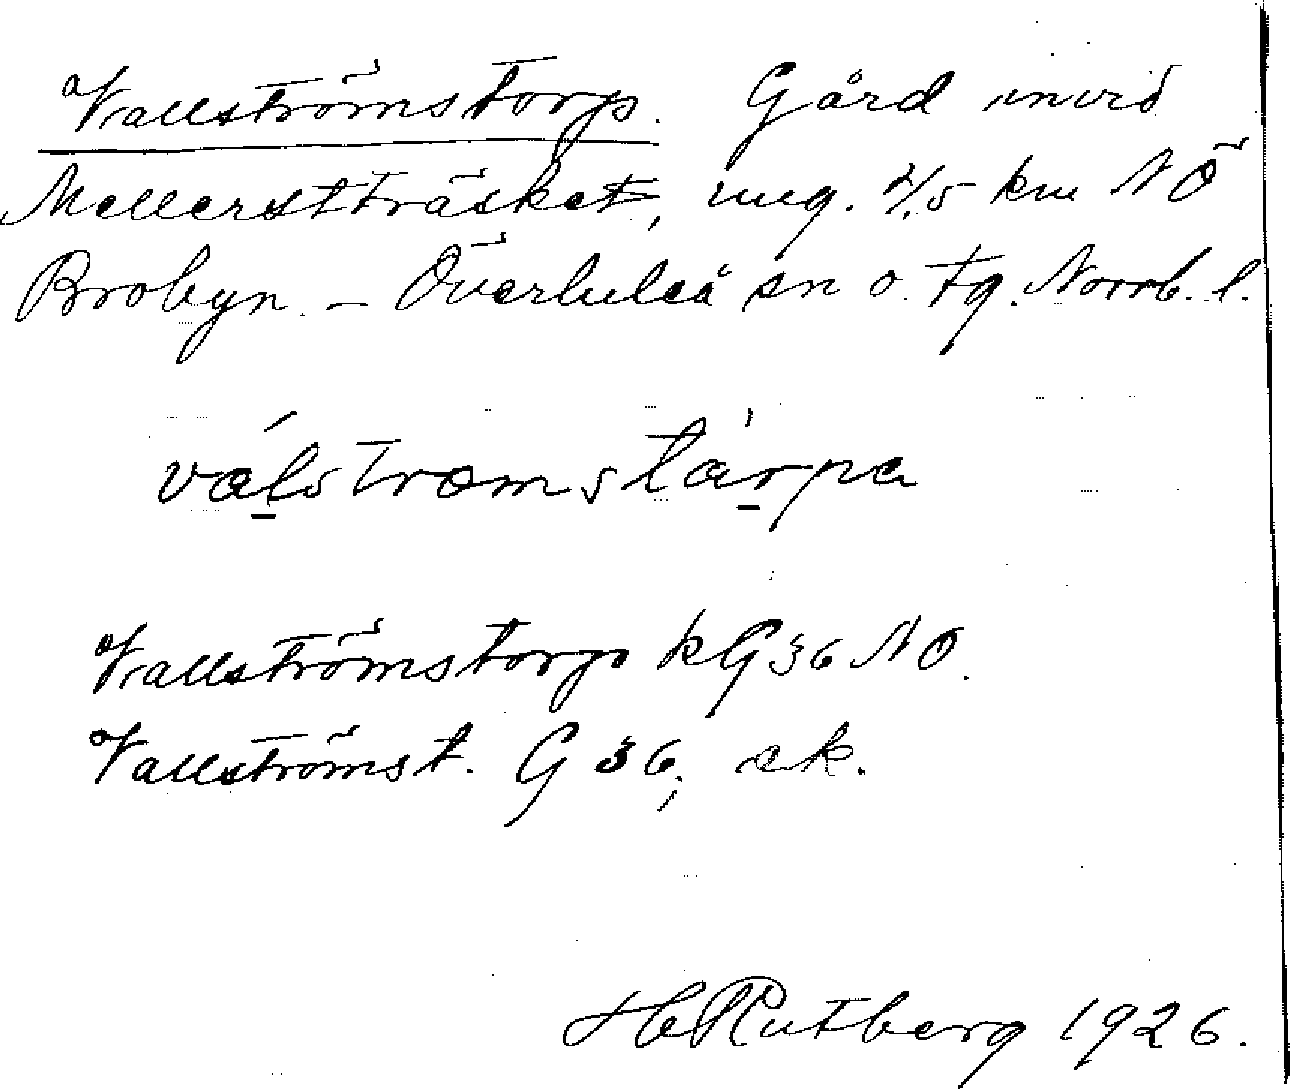 Vallströmstorp. Gård invid
Mellerstträsket, ung. 4,5 km NÖ
Brobyn. – Överluleå sn o. tg. Norrb. l.
válstromstárpa
Vallströmstorp kG36 NO.
Vallströmst. G 36; ek.
H Rutberg 1926.